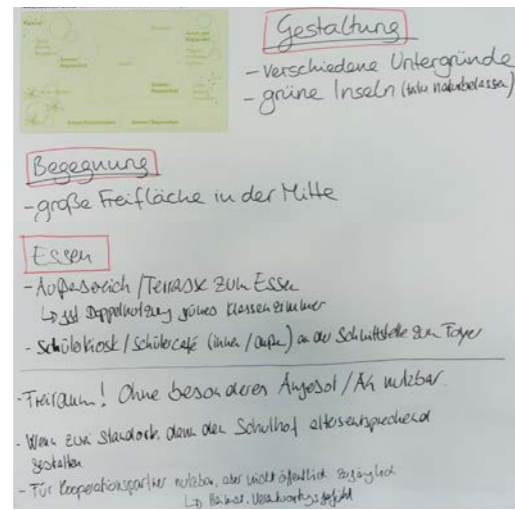 Gestaltung
- verschiedene Untergründe
- grüne Inseln (naturbelassen)
Begegnung
- große Freifläche in der Mitte
Essen
- Außenbereich / Terrasse zum Essen
↳ ggf. Doppelnutzung grünes Klassenzimmer
- Schülerkiosk / Schülercafé (innen / außen) an der Schnittstelle zum Foyer
- Freiraum! Ohne besonderes Angebot / nutzbar
- Wenn zwei Standorte, dann den Schulhof altersentsprechend
gestalten
- Für Kooperationspartner nutzbar, aber nicht öffentlich zugänglich
↳ Heimat-, Verantwortungsgefühl